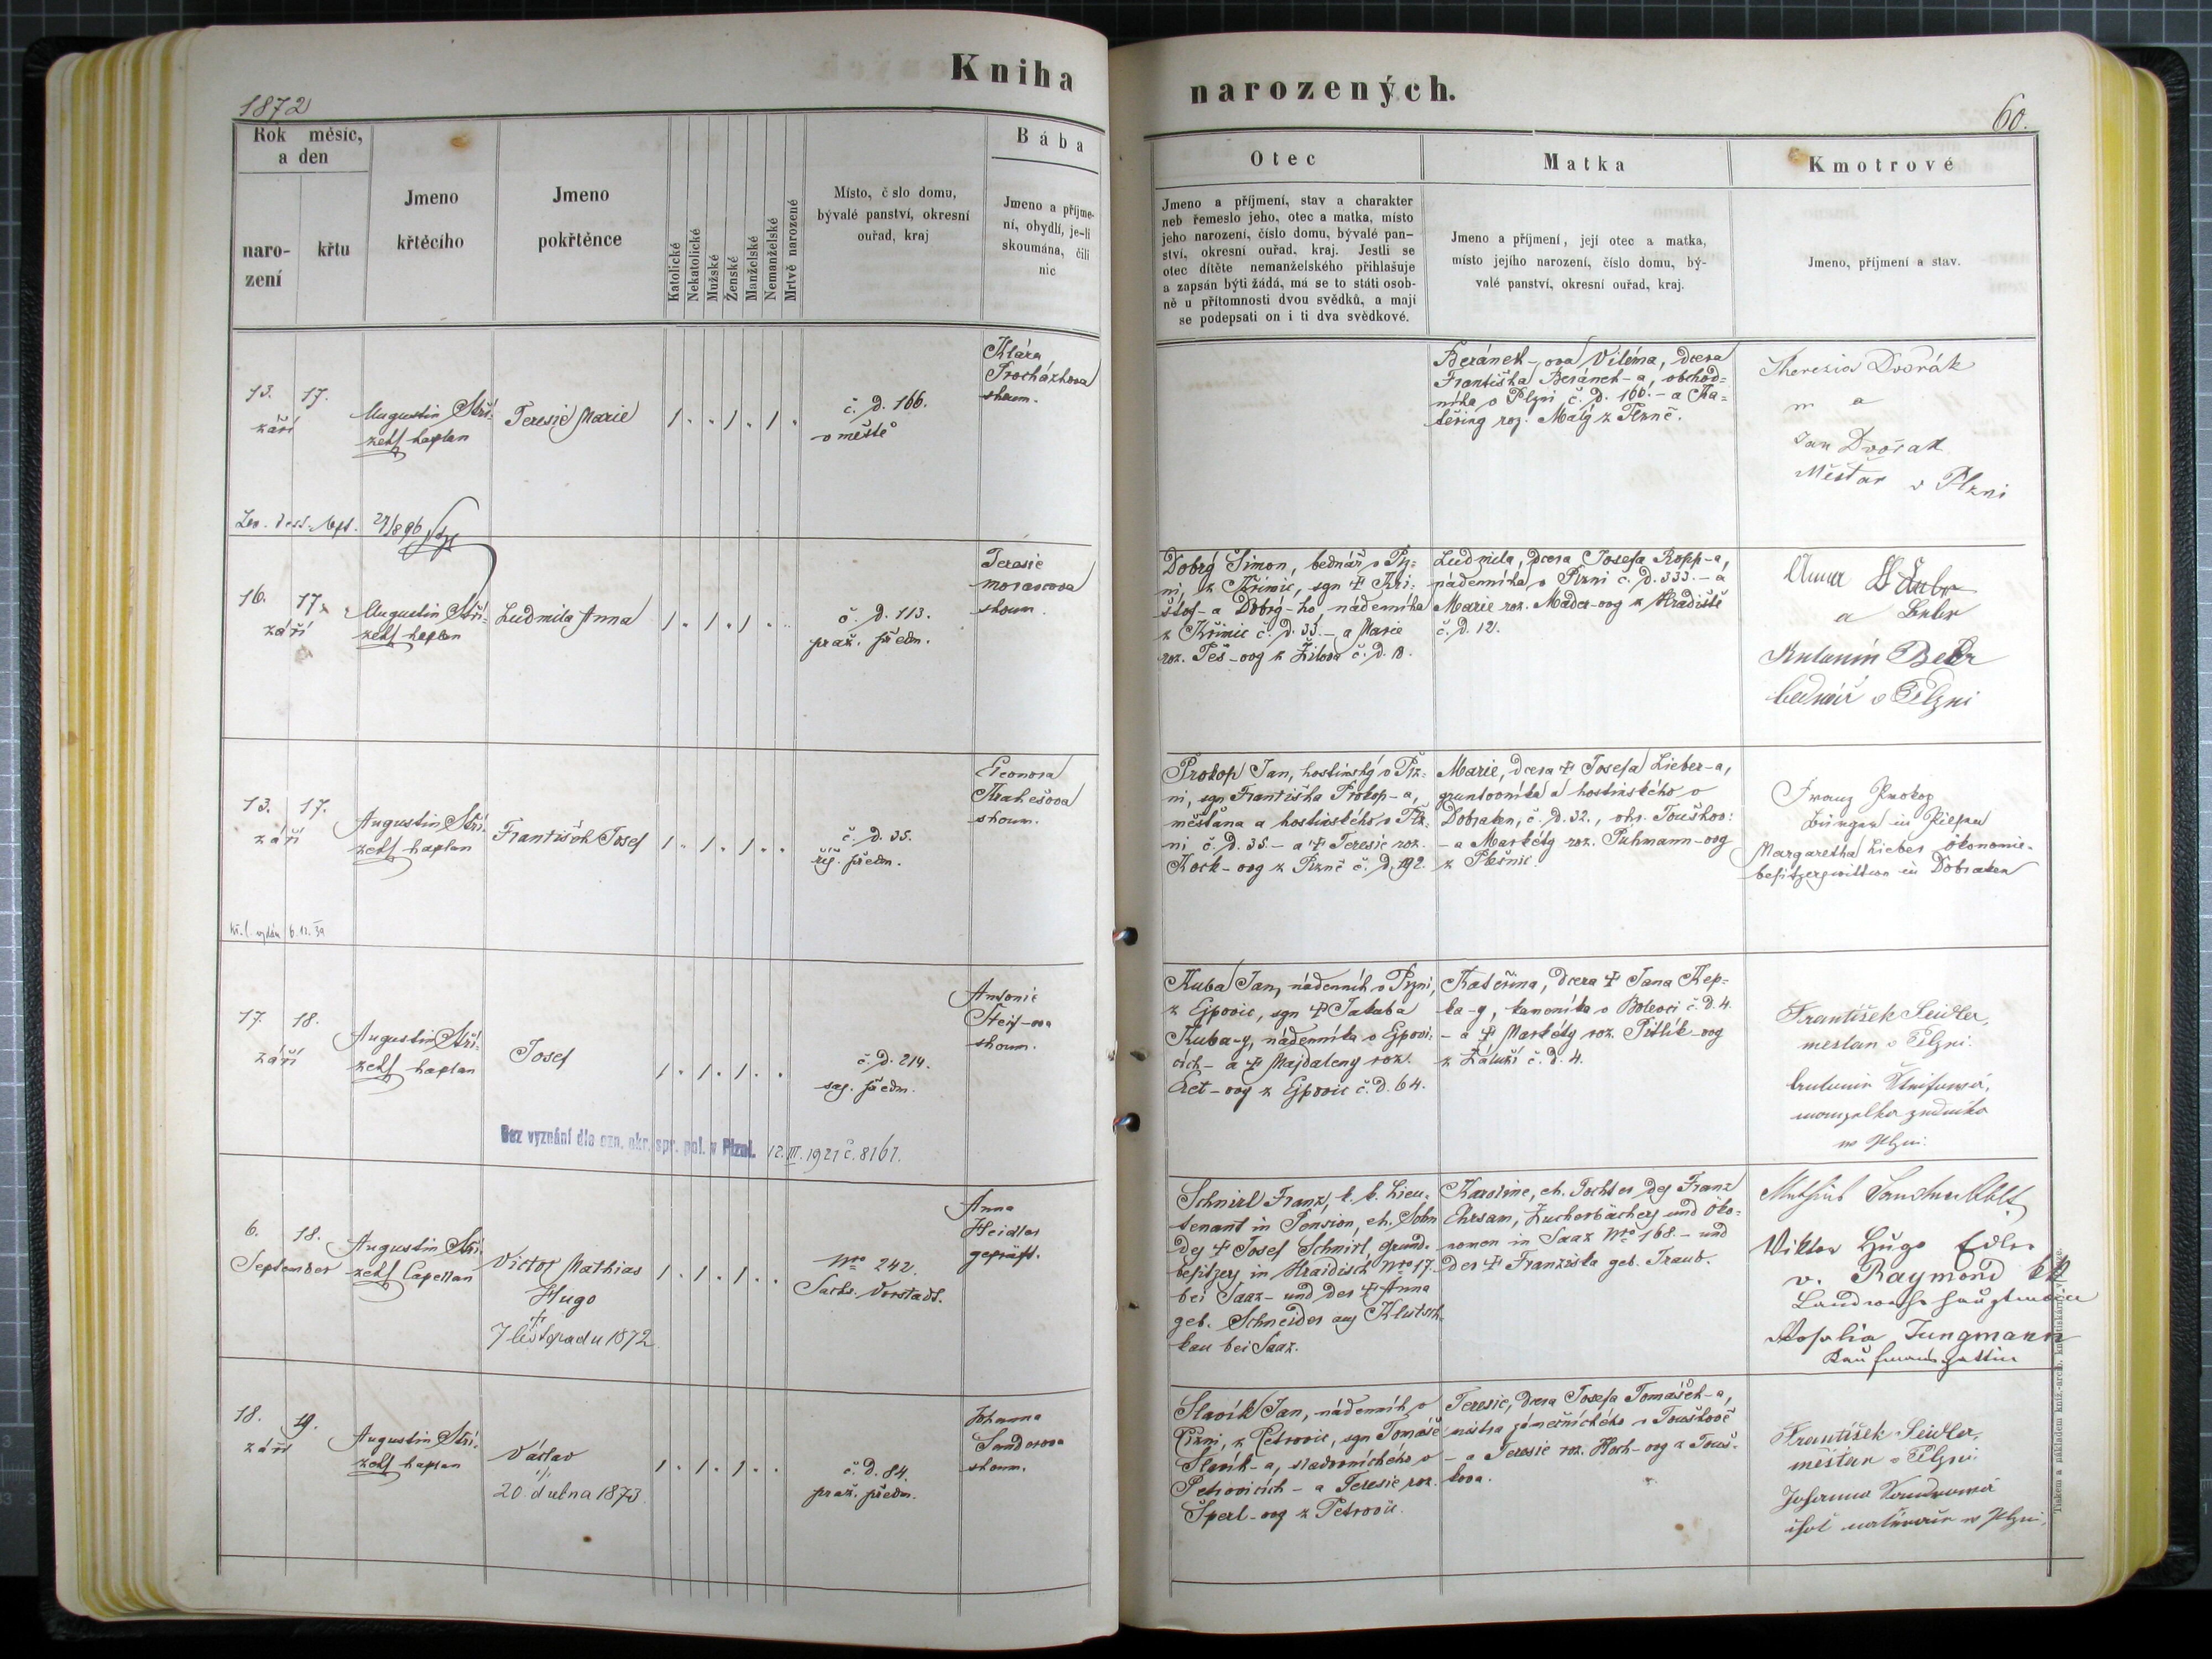 Kniha
narozených.
1872
60.
Rok měsíc,
a den
naro-
zení
křtu
Jmeno
křtěcího
Jmeno
pokřtěnce
Katolické
Nekatolické
Mužské
Ženské
Manželské
Nemanželské
Mrtvě narozené
Místo, č slo domu,
bývalé panství, okresní
ouřad, kraj
Bába
Jmeno a příjme-
ní, obydlí, je-li
skoumána, čili
nic
Otec
Jmeno a příjmení, stav a charakter
neb řemeslo jeho, otec a matka, místo
jeho narození, číslo domu, bývalé pan-
ství, okresní ouřad, kraj. Jestli se
otec dítěte nemanželského přihlašuje
a zapsán býti žádá, má se to státi osob-
ně u přítomnosti dvou svědků, a mají
se podepsati on i ti dva svědkové.
Matka
Jmeno a příjmení, její otec a matka,
místo jejího narození, číslo domu, bý-
valé panství, okresní ouřad, kraj.
Kmotrové
Jmeno, příjmení a stav.
13. 17.
září
Augustin Stří-
kaplan
Teresie Marie
č. d. 166.
v městě
Klára
Procházkova
skoum.
Beránek-ova Viléma, dcera
Františka Beránek-a, obchod-
níka v Plzni č. d. 166. - a Ka-
teřiny roz. Malý z Plzně.
Therezia Dvořák
a
Jan Dvořák
Měšťan v Plzni
16. 17.
září
Augustin Stří-
kaplan
Ludmila Anna
č. d. 113.
praž. předm.
Teresie
skoum.
Dobrý Šimon, bednář v Plz-
ni, z Křimic, syn † Kri-
štof-a Dobrý-ho, nádenníka
z Křimic č. d. 33. - a Marie
roz. Peš-ovy z Žilova č. d. 8.
Ludmila, dcera Josefa Ropp-a,
nádenníka v Plzni č. d. 333. - a
Marie roz. Mader-ovy z Hradiště
č. d. 12.
Anna
a
Antonín
bednář v Plzni
13. 17.
září
Augustin Stří-
kaplan
František Josef
č. d. 35.
říš. předm.
Eleonora
skoum.
kř. l. vydán 6.12.39
Prokop Jan, hostinský v Plz-
ni, syn Františka Prokop-a,
měšťana a hostinského v Plz-
ni č. d. 35 - a † Teresie roz.
Kock-ovy z Plzně č. d. 192.
Marie, dcera † Josefa Lieber-a,
gruntovníka a hostinského v
Dobraken, č. d. 32., okr. Touškov:
- a Markéty roz. Puhmann-ovy
z Plešnic.
Franz Prokop
Bürger in Pilsen
Margaretha Lieber Ökonomie-
besitzerswittwe in Dobraken
17. 18.
září
Augustin Stří-
kaplan
Josef
č. d. 214.
sas. předm.
Antonie
Steif-ova
skoum.
Bez vyznání dle ozn. okr. spr. pol. v Plzni. 12. III. 1921 č. 8161.
Kuba Jan, nádenník v Plzni,
z Ejpovic, syn † Jakuba
Kuba-y, nádenníka v Ejpovi-
cích - a † Majdaleny roz.
z Ejpovic č. d. 64.
Kateřina, dcera † Jana Kep-
ka-y, v Bolevci č. d. 4.
- a † Markéty roz. Pitlík-ovy
z Záluží č. d. 4.
František Seidler,
měšťan v Plzni.
manželka zedníka
w Plzni.
6. 18.
September
Augustin Stří-
Capellan
Victor Mathias
Hugo
†
7 listopadu 1872
Nro 242.
Sachs. Vorstadt.
Anna
Heidler
geprüft.
Schnirl Franz, k. k. Lieu-
tenant in Pension, eh. Sohn
des † Josef Schnirl, Grund-
besitzers in Hraidisch Nro 17.
bei Saaz - und der † Anna
geb. Schneider aus
bei Saaz.
Karoline, eh. Tochter des Franz
Ehrsam, Zuckerbäckers und Öko-
nomen in Saaz Nro 168. - und
der † Franziska geb. Traub.
Viktor Hugo Edler
v. Raymond kk
Landwehr hauptmann
Rosalia Jungmann
Kaufmanns gattin
18. 19.
září
Augustin Stří-
kaplan
Václav
†
20. dubna 1873.
č. d. 84.
praž. předm.
Johanna
skoum.
Slavík Jan, nádenník v
Plzni, z Petrovic, syn Tomáše
Slavík-a, v
Petrovicích - a Teresie roz.
Šperl-ovy z Petrovic.
Teresie, dcera Josefa Tomášek-a,
mistra zámečnického v Touškově
- a Teresie roz. Hoch-ovy z Touš-
kova.
František Seidler,
měšťan v Plzni.
Johanna
w Plzni.